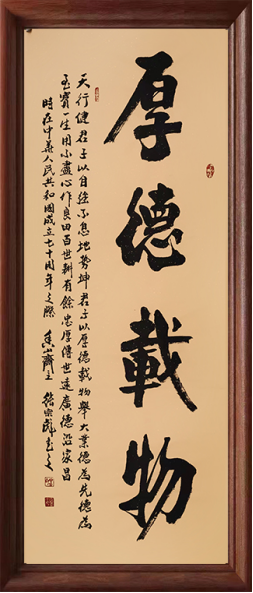 厚德載物
天行健君子以自強不息地勢坤君子以厚德載物舉大業德為先德為
至寶一生用不盡心作良田百世耕有餘忠厚傳世遠廣德治家昌
時在中華人民共和國成立七十周年之際 齋主 徐宗